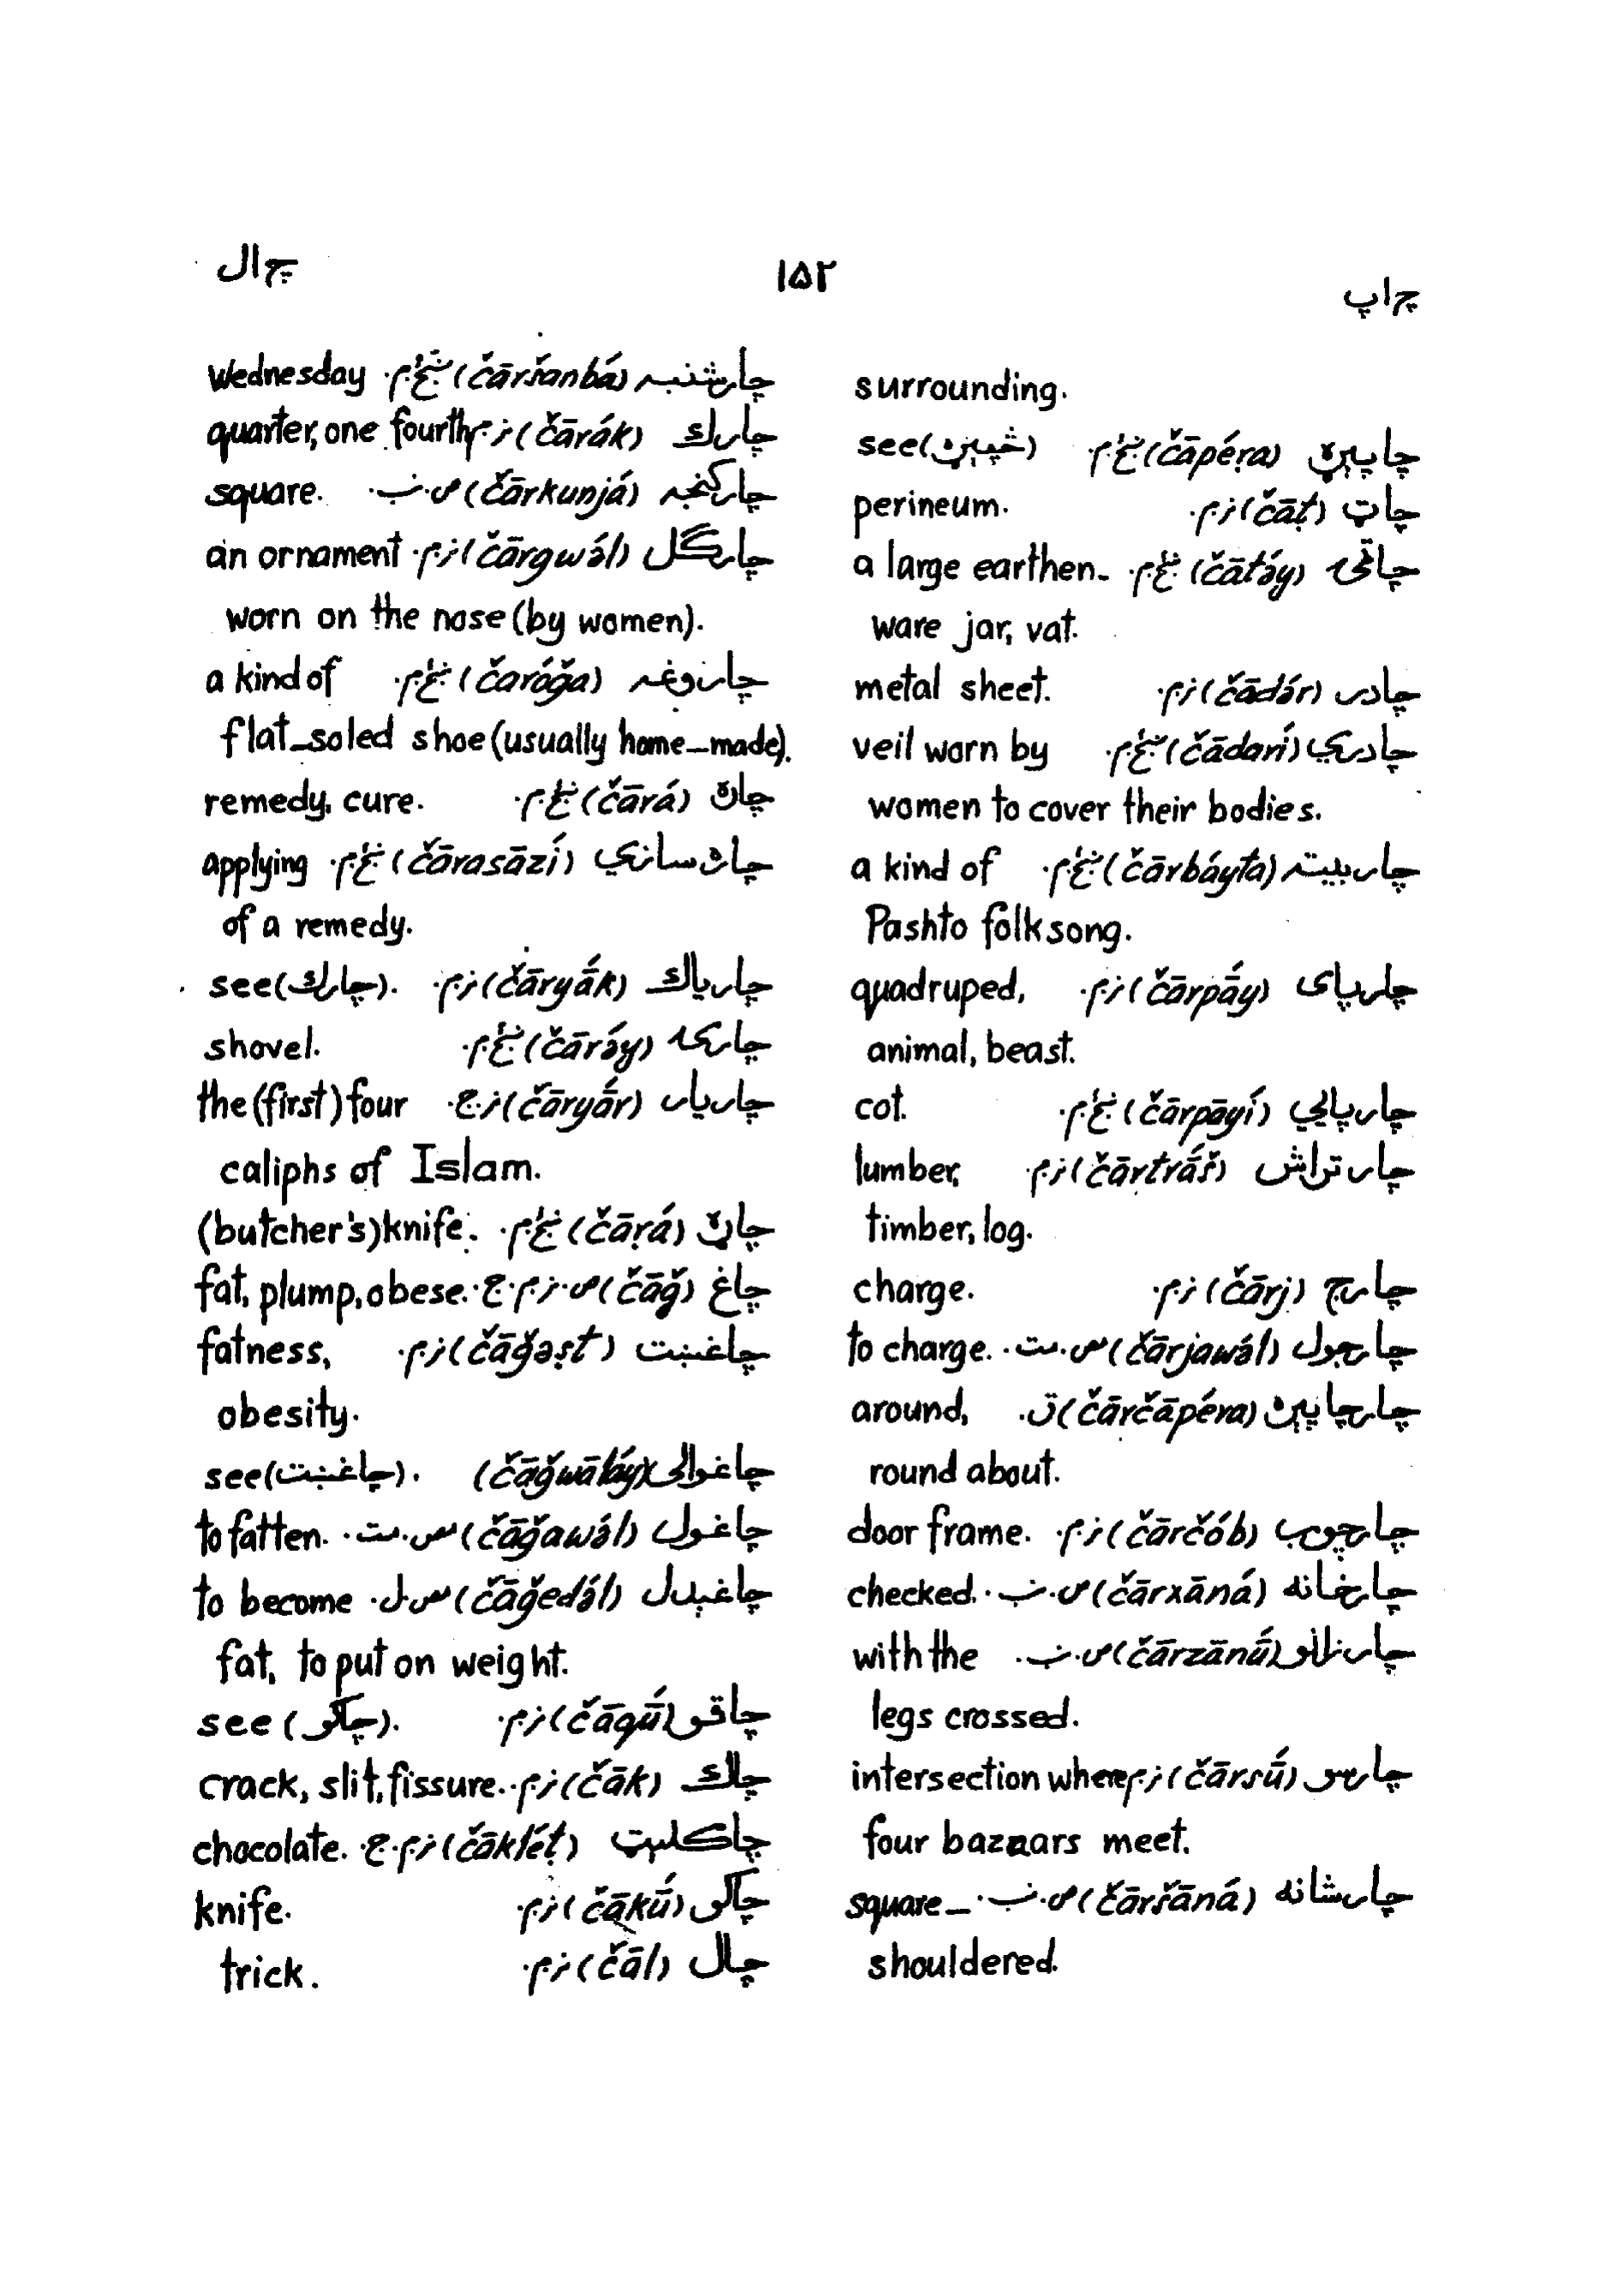 چ اپ
۱۵۲
چ ال
surrounding.
چاپېړه (čāpéṛa) ښځ.م. see (څپېره)
چاټ (čāṭ) نر.م. perineum.
چاټۍ (čāṭə́y) ښځ.م. a large earthen-
ware jar, vat.
چادر (čādə́r) نر.م. metal sheet.
چادري (čādarí) ښځ.م. veil worn by
women to cover their bodies.
چاربيته (čārbáyta) ښځ.م. a kind of
Pashto folk song.
چارپای (čārpā́y) نر.م. quadruped,
animal, beast.
چارپايي (čārpāyí) ښځ.م. cot.
چارتراش (čārtrā́š) نر.م. lumber,
timber, log.
چارج (čārj) نر.م. charge.
چارجول (čārjawə́l) مص.مت. to charge.
چارچاپېره (čārčāpéra) ق. around,
round about.
چارچوب (čārčób) نر.م. door frame.
چارخانه (čārxāná) ص.نب. checked.
چارزانو (čārzānū́) ص.نب. with the
legs crossed.
چارسو (čārsū́) نر.م. intersection where
four bazaars meet.
چارشانه (čāršāná) ص.نب. square-
shouldered.
چارشنبه (čāršanbá) ښځ.م. Wednesday
چارك (čārák) نر.م. quarter, one fourth
چاركنجه (čārkunjá) ص.نب. square.
چارګل (čārgwə́l) نر.م. an ornament
worn on the nose (by women).
چاروغه (čaróğa) ښځ.م. a kind of
flat-soled shoe (usually home-made).
چاره (čārá) ښځ.م. remedy, cure.
چاره سازي (čārasāzí) ښځ.م. applying
of a remedy.
چارياك (čāryā́k) نر.م. see (چارك).
چارۍ (čārə́y) ښځ.م. shovel.
چاريار (čāryā́r) نر.ج. the (first) four
caliphs of Islam.
چاړه (čāṛá) ښځ.م. (butcher's) knife.
چاغ (čāğ) ص.نر.م.ج. fat, plump, obese.
چاغښت (čāğəṣt) نر.م. fatness,
obesity.
چاغوالی (čāğwāláy) see (چاغښت).
چاغول (čāğawə́l) مص.مت. to fatten.
چاغېدل (čāğedə́l) مص.ل. to become
fat, to put on weight.
چاقو (čāqū́) نر.م. see (چاكو).
چاك (čāk) نر.م. crack, slit, fissure.
چاكلېټ (čākléṭ) نر.م.ج. chocolate.
چاكو (čākū́) نر.م. knife.
چال (čāl) نر.م. trick.